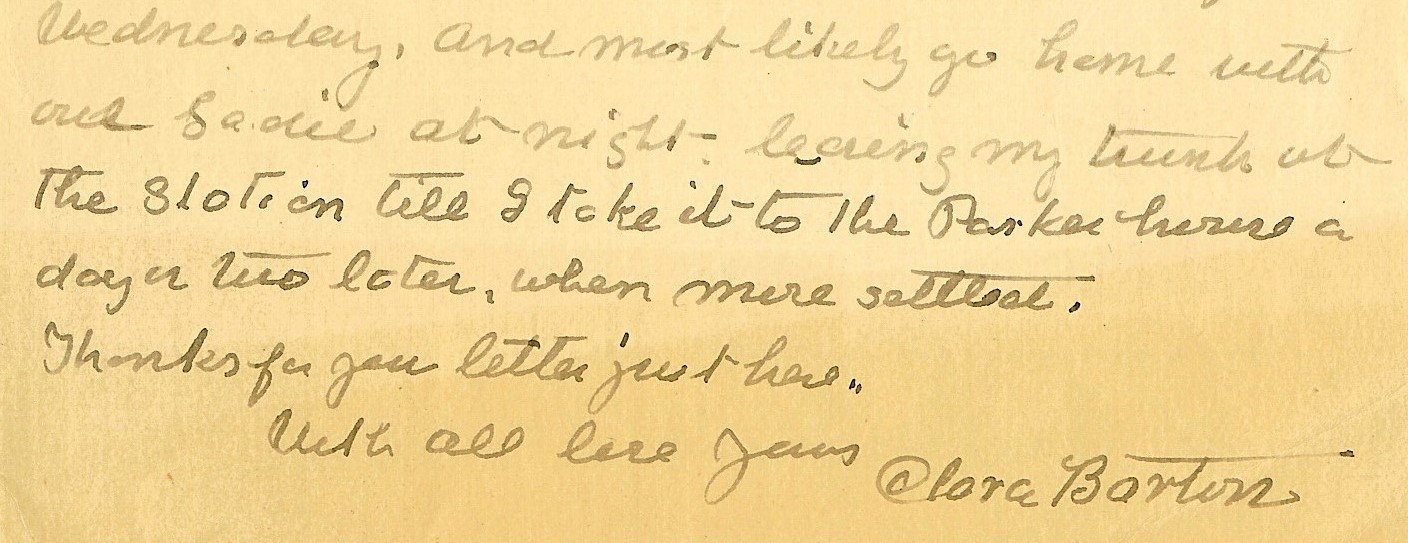 Wednesday, and most likely go home with
our Sadie at night, leaving my trunk at
the Station till I take it to the Parker house a
day or two later, when more settled.
Thanks for your letter just here.
With all love Yours
Clara Barton